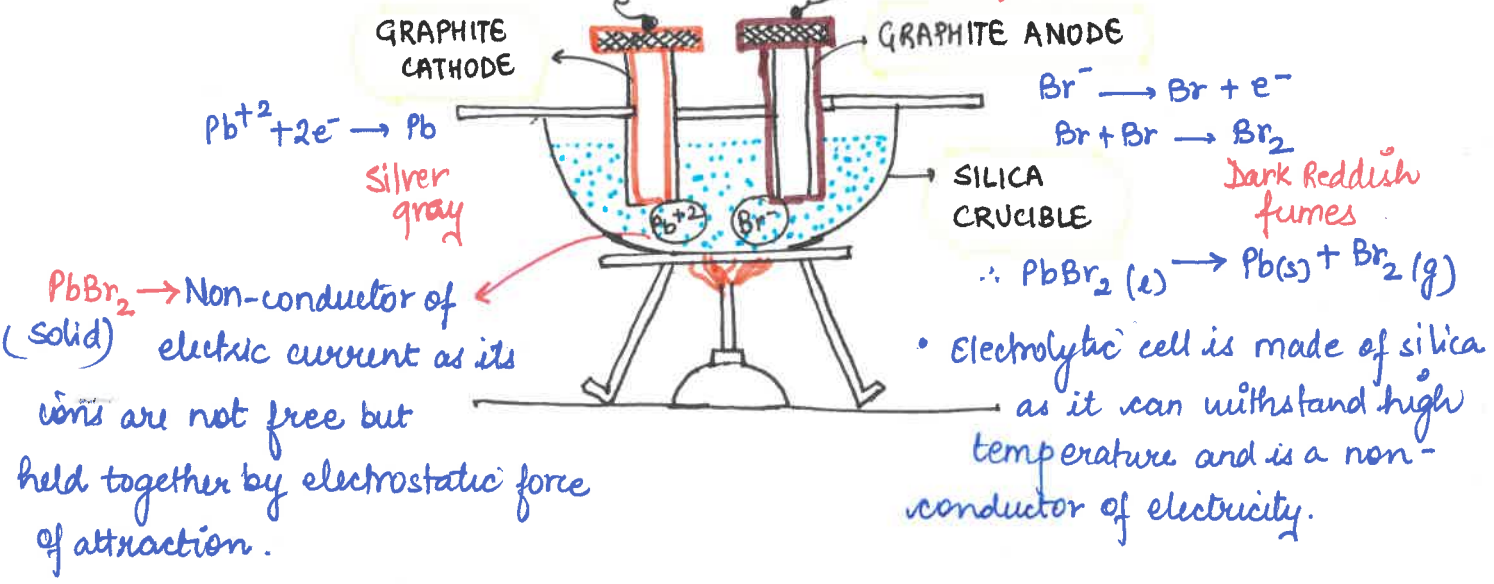 GRAPHITE
CATHODE
GRAPHITE ANODE
Pb⁺² + 2e⁻ → Pb
Silver
gray
Br⁻ → Br + e⁻
Br + Br → Br₂
Dark Reddish
fumes
SILICA
CRUCIBLE
Pb⁺²
Br⁻
∴ PbBr₂ (l) → Pb(s) + Br₂ (g)
PbBr₂ → Non-conductor of
(solid) electric current as its
ions are not free but
held together by electrostatic force
of attraction.
• Electrolytic cell is made of silica
as it can withstand high
temperature and is a non-
conductor of electricity.